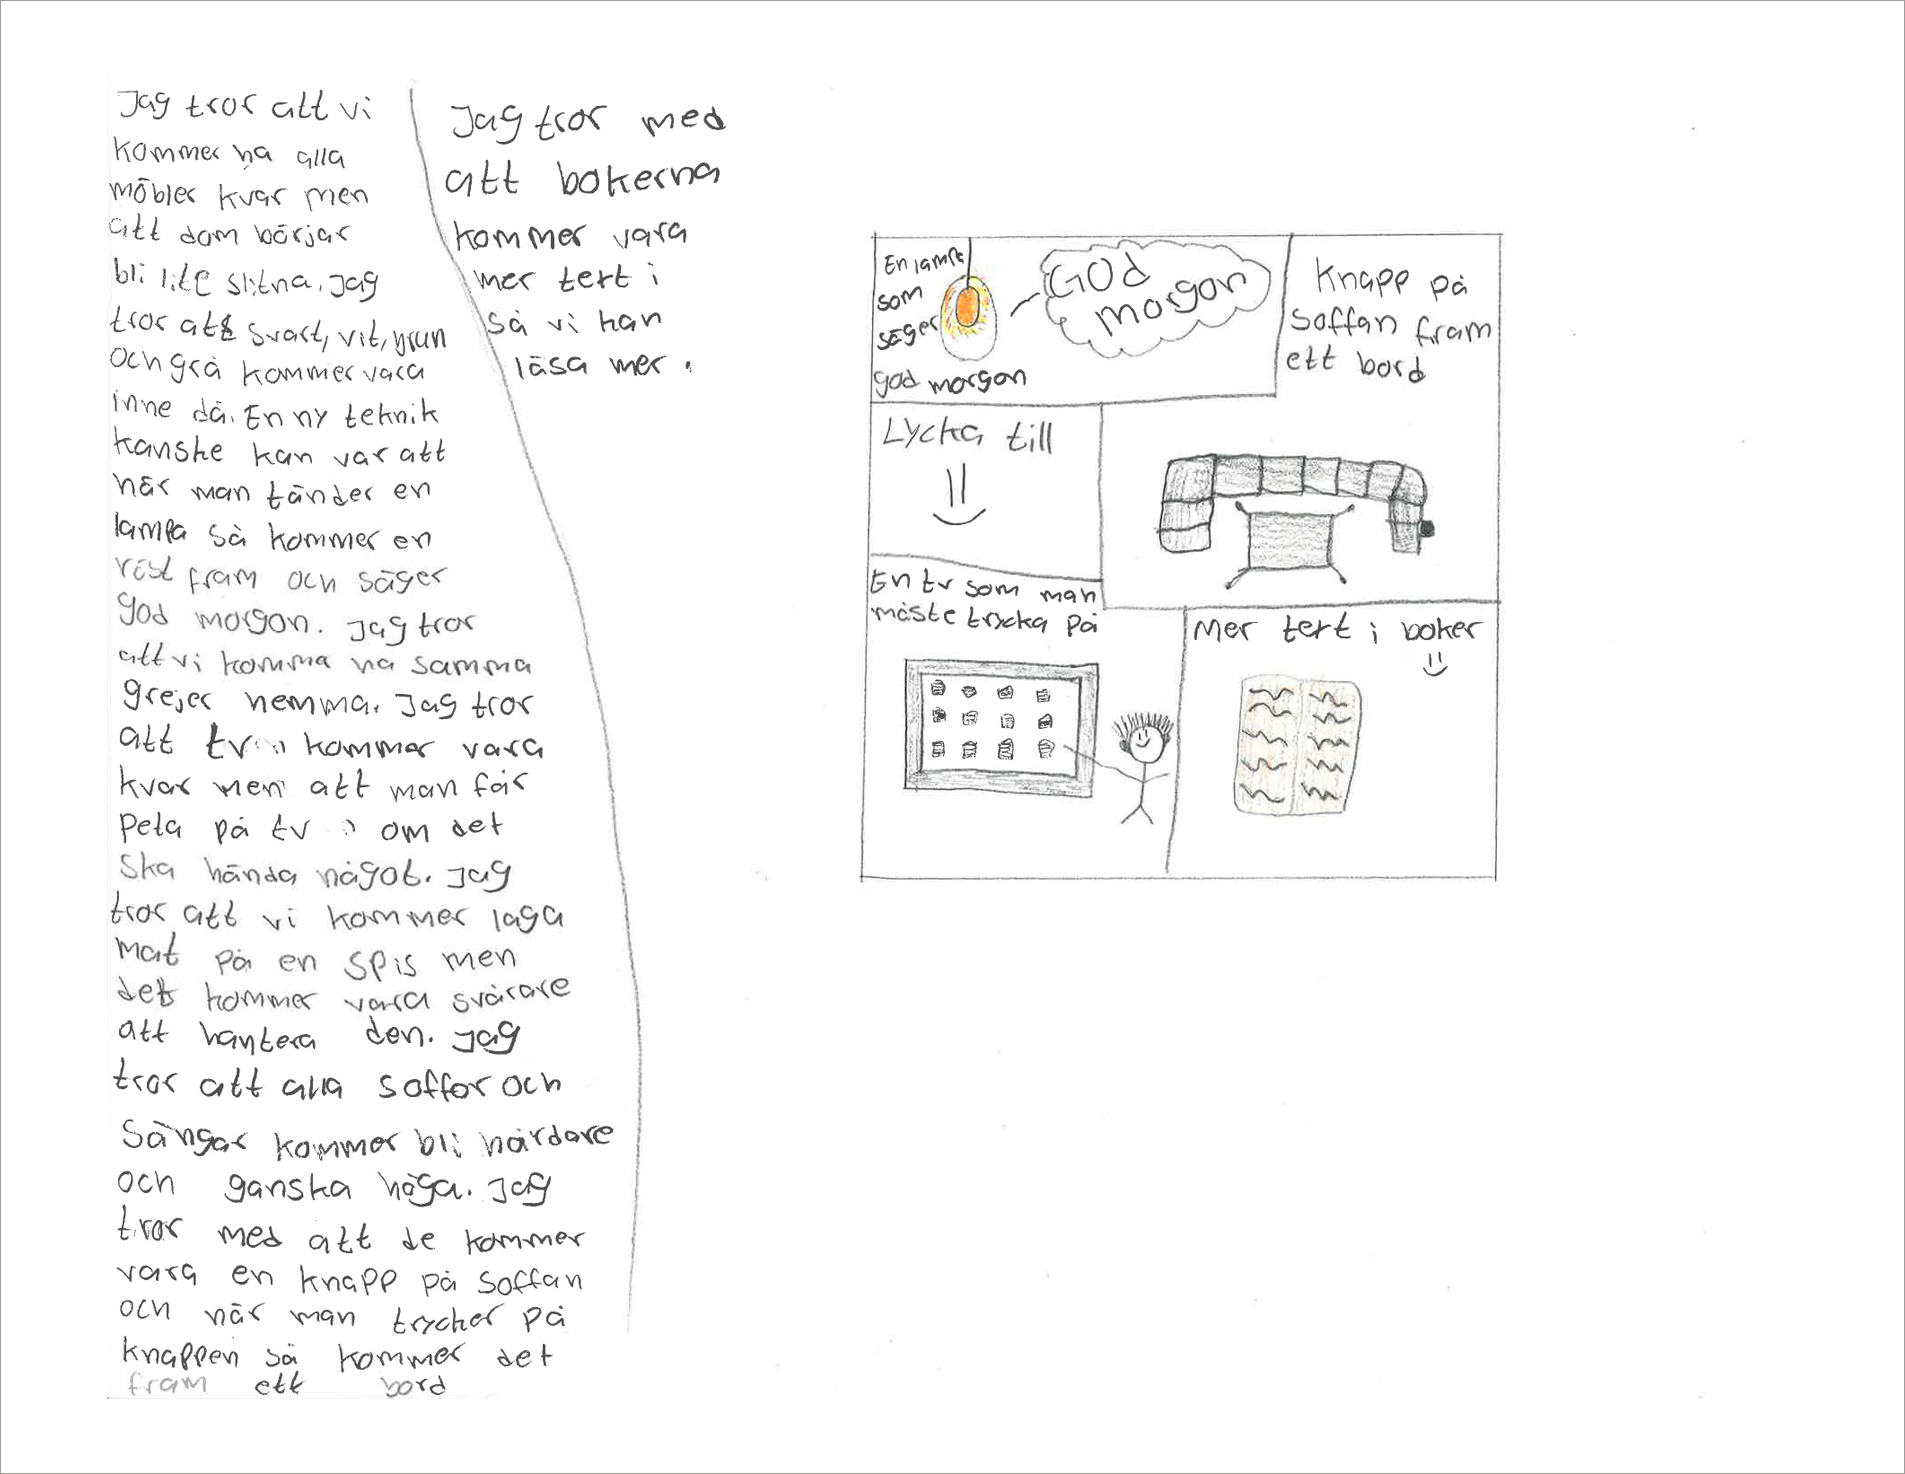 Jag tror att vi
kommer ha alla
möbler kvar men
att dom börjar
bli lite slitna. Jag
tror att svart, vit, grun
och grå kommer vara
inne då. En ny teknik
kanske kan var att
när man tänder en
lampa så kommer en
röst fram och säger
god morgon. Jag tror
att vi komma ha samma
grejer hemma. Jag tror
att tv kommer vara
kvar men att man får
peta på tv om det
ska hända något. Jag
tror att vi kommer laga
mat på en spis men
det kommer vara svårare
att hantera den. Jag
tror att alla soffor och
sängar kommer bli hårdare
och ganska höga. Jag
tror med att de kommer
vara en knapp på soffan
och när man trycker på
knappen så kommer det
fram ett bord
Jag tror med
att bokerna
kommer vara
mer tert i
så vi kan
läsa mer.
En lampa
som
säger
god morgon
GOD
morgon
Knapp på
soffan fram
ett bord
Lycka till
En tv som man
måste trycka på
Mer tert i boker